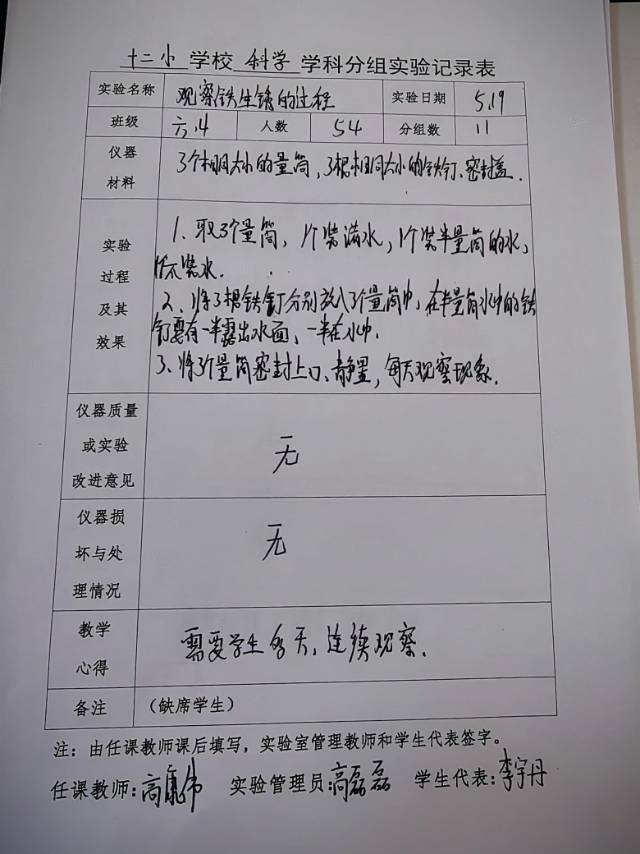 十二小 学校 科学 学科分组实验记录表
实验名称 观察铁生锈的过程 实验日期 5.19
班级 六.4 人数 54 分组数 11
仪器
材料
3个相同大小的量筒,3根相同大小的铁钉、密封盖.
实验
过程
及其
效果
1、取3个量筒,1个装满水,1个装半量筒的水,
1个不装水.
2、将3根铁钉分别放入3个量筒中,在半量筒水中的铁
钉要有一半露出水面,一半在水中.
3、将3个量筒密封上口、静置,每天观察现象.
仪器质量
或实验
改进意见
无
仪器损
坏与处
理情况
无
教学
心得
需要学生多天,连续观察.
备注 (缺席学生)
注:由任课教师课后填写,实验室管理教师和学生代表签字。
任课教师:高康伟 实验管理员:高磊磊 学生代表:李宇丹